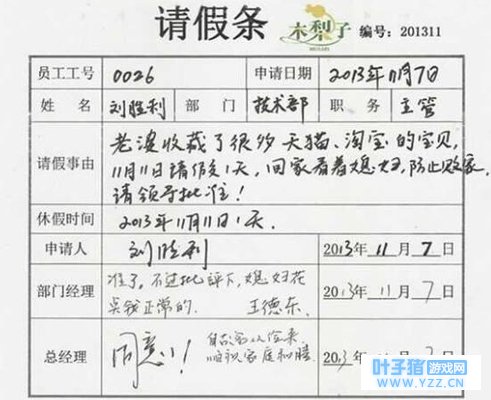 请假条 木梨子 MULIZI 编号：201311
员工工号 0026 申请日期 2013年11月7日
姓名 刘胜利 部门 技术部 职务 主管
老婆收藏了很多天猫、淘宝的宝贝,
请假事由 11月11日请假1天，回家看着媳妇,防止败家.
请领导批准！
休假时间 2013年11月11日1天.
申请人 刘胜利 2013年11月7日
准了，不过批评下，媳妇花
部门经理 2013年11月7日
点钱正常的. 王德东
自古家从俭来
总经理 同意！ 2013 7日
祝家庭和睦
叶子猪游戏网
www.YZZ.CN